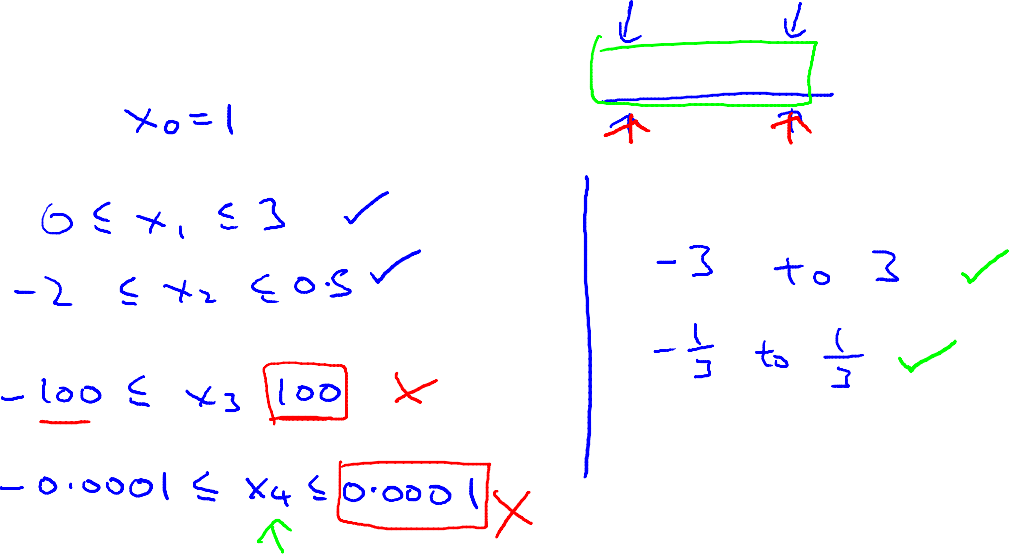 x₀ = 1
0 ≤ x₁ ≤ 3 ✓
-2 ≤ x₂ ≤ 0.5 ✓
-100 ≤ x₃ 100 ×
-0.0001 ≤ x₄ ≤ 0.0001 ×
-3 to 3 ✓
-1/3 to 1/3 ✓